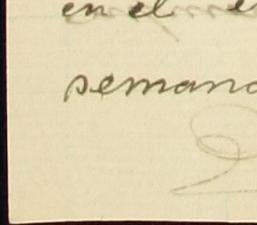 en el
semana